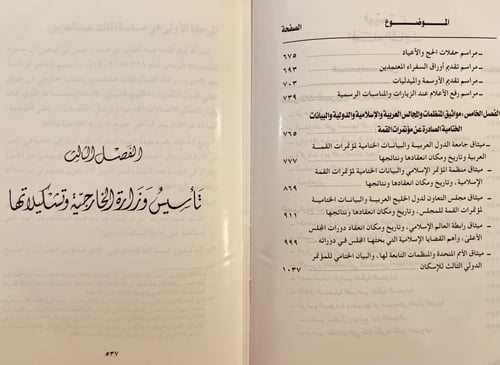 الموضوع الصفحة
ـ مراسم حفلات الحج والأعياد ٦٧٥
ـ مراسم تقديم أوراق السفراء المعتمدين ٦٩٣
ـ مراسم تقديم الأوسمة والميداليات ٧٠٣
ـ مراسم رفع الأعلام عند الزيارات والمناسبات الرسمية ٧٣٩
الفصل الخامس : مواثيق المنظمات والمجالس العربية والإسلامية والدولية والبيانات
الختامية الصادرة عن مؤتمرات القمة : ٧٦٥
ـ ميثاق جامعة الدول العربية والبيانات الختامية لمؤتمرات القمة
العربية وتاريخ ومكان انعقادها ونتائجها ٧٧٧
ـ ميثاق منظمة المؤتمر الإسلامي والبيانات الختامية لمؤتمرات القمة
الإسلامية ، وتاريخ ومكان انعقادها ونتائجها ٨٦٩
ـ ميثاق مجلس التعاون لدول الخليج العربية والبيانات الختامية
لمؤتمرات القمة للمجلس ، وتاريخ ومكان انعقادها ونتائجها ٩١١
ـ ميثاق رابطة العالم الإسلامي ، وتاريخ ومكان انعقاد دورات المجلس
الأعلى ، وأهم القضايا الإسلامية التي بحثها المجلس في دوراته ٩٩٩
ـ ميثاق الأمم المتحدة والمنظمات التابعة لها ، والبيان الختامي للمؤتمر
الدولي الثالث للإسكان ١٠٣٧
الفصل الثالث
تأسيس وزارة الخارجية وتشكيلاتها
٥٣٧